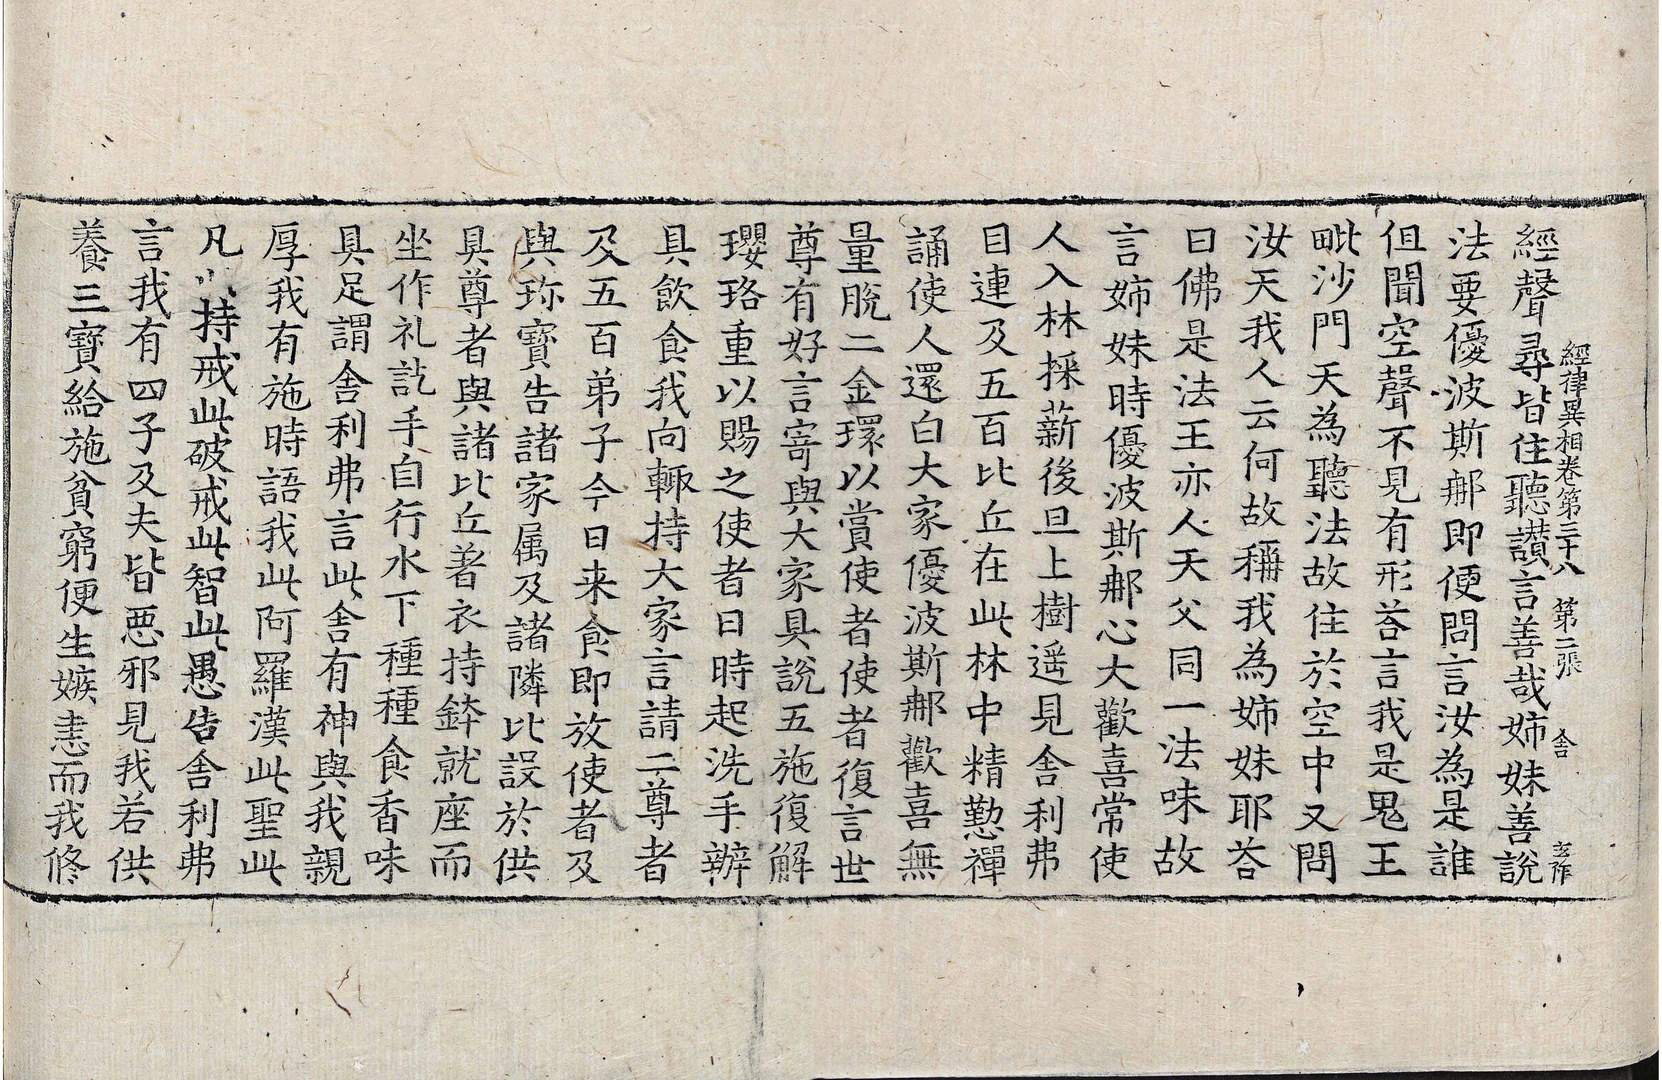 經律異相卷第三十八 第二張 舍 玄祚
經聲尋皆住聽讃言善哉姉妹善說
法要優波斯𨚗即便問言汝為是誰
但聞空聲不見有形荅言我是鬼王
毗沙門天為聽法故住於空中又問
汝天我人云何故稱我為姉妹耶荅
曰佛是法王亦人天父同一法味故
言姉妹時優波斯𨚗心大歡喜常使
人入林採薪後旦上樹遥見舍利弗
目連及五百比丘在此林中精懃禪
誦使人還白大家優波斯𨚗歡喜無
量脫二金環以賞使者使者復言世
尊有好言寄與大家具說五施復解
瓔珞重以賜之使者曰時起洗手辦
具飲食我向輙持大家言請二尊者
及五百弟子今日来食即放使者及
與珎寶告諸家属及諸隣比設於供
具尊者與諸比丘著衣持鉢就座而
坐作礼訖手自行水下種種食香味
具足謂舍利弗言此舍有神與我親
厚我有施時語我此阿羅漢此聖此
凡此持戒此破戒此智此愚告舍利弗
言我有四子及夫皆惡邪見我若供
養三寶給施貧窮便生嫉恚而我修